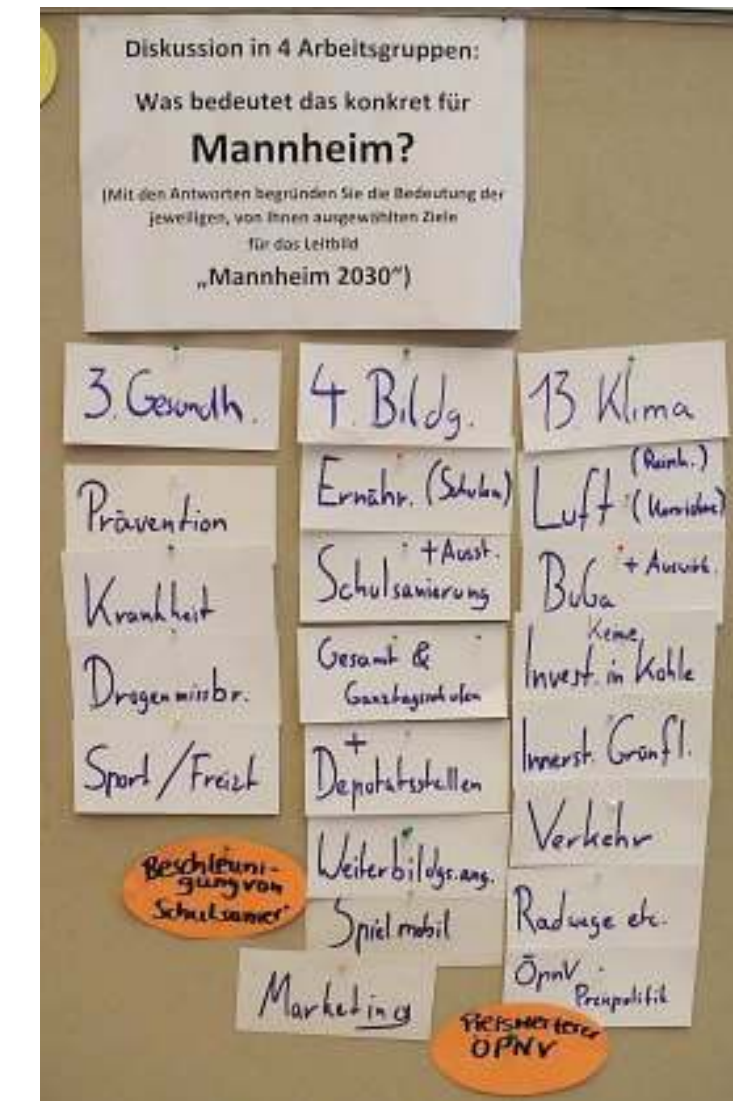 Diskussion in 4 Arbeitsgruppen:
Was bedeutet das konkret für
Mannheim?
(Mit den Antworten begründen Sie die Bedeutung der
jeweiligen, von Ihnen ausgewählten Ziele
für das Leitbild
„Mannheim 2030“)
3. Gesundh.
Prävention
Krankheit
Drogenmissbr.
Sport / Freizt
Beschleuni-
gung von
Schulsanier
4. Bildg.
Ernähr. (Schulen)
+ Ausst.
Schulsanierung
Gesamt &
Ganztagsschulen
+
Deputatsstellen
Weiterbildgs.ang.
Spielmobil
Marketing
13 Klima
(Reinh.)
Luft
BuGa + Auswirk.
Keine
Invest. in Kohle
Innerst. Grünfl.
Verkehr
Radwege etc.
ÖpnV
Preispolitik
Preiswerterer
ÖPNV